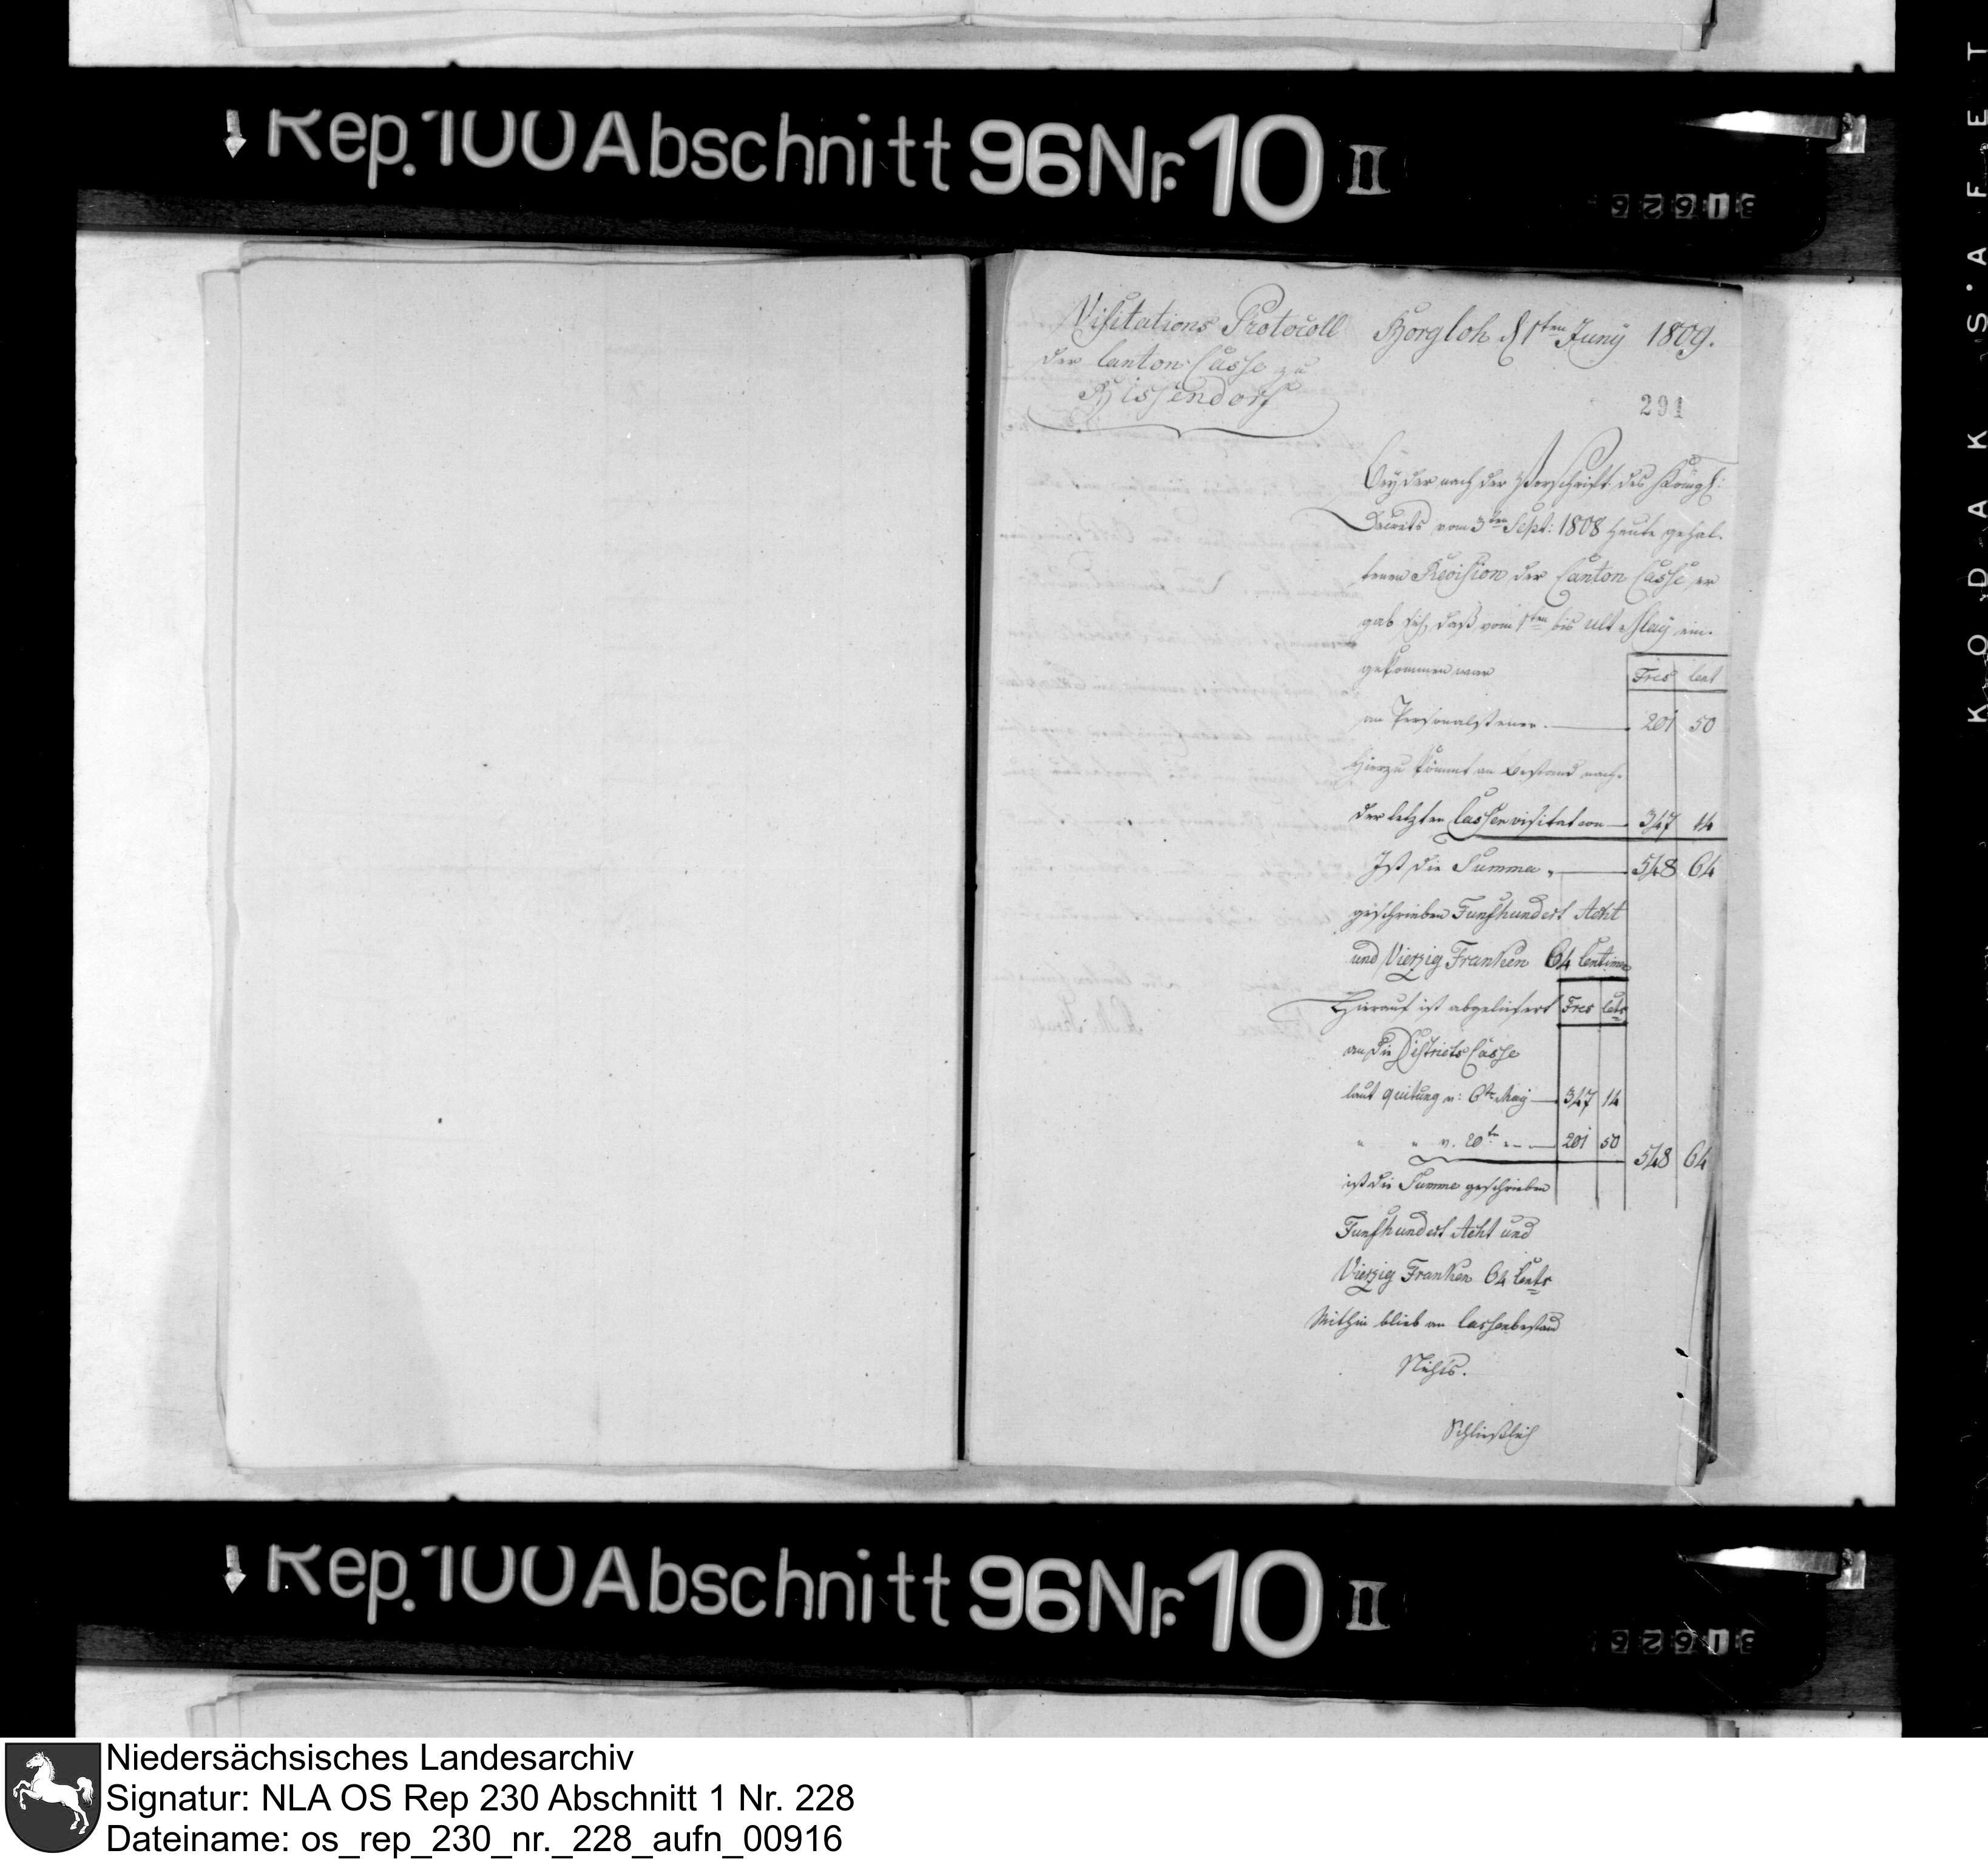 Rep. 100 Abschnitt 96 Nr. 10 II
Visitations Protocoll
der Canton Casse zu
Bissendorf
Borgloh d 1ten Juny 1809.
291
Bey der nach der Vorschrift des Königl:
Decrets vom 3ten Sept: 1808 heute gehal-
tenen Revision der Canton Casse er
gab sich, daß vom 1ten bis ult May ein-
gekommen war
Frcs Cent
an Personalsteuer. 201 50
Hierzu kömmt an Bestand nach
der letzten Cassenvisitation 347 14
Ist die Summa 548 64
geschrieben Funfhundert Acht
und Vierzig Franken 64 Centimen
Hierauf ist abgeliefert Frcs Cets
an die Districts Casse
laut quitung v: 6ten May 347 14
" " v. 20ten " 201 50
548 64
ist die Summe geschrieben
Funfhundert Acht und
Vierzig Franken 64 Cents
Mithin blieb an Cassenbestand
Nichts.
Schließlich
Rep. 100 Abschnitt 96 Nr. 10 II
KODAK SAFET
Niedersächsisches Landesarchiv
Signatur: NLA OS Rep 230 Abschnitt 1 Nr. 228
Dateiname: os_rep_230_nr._228_aufn_00916